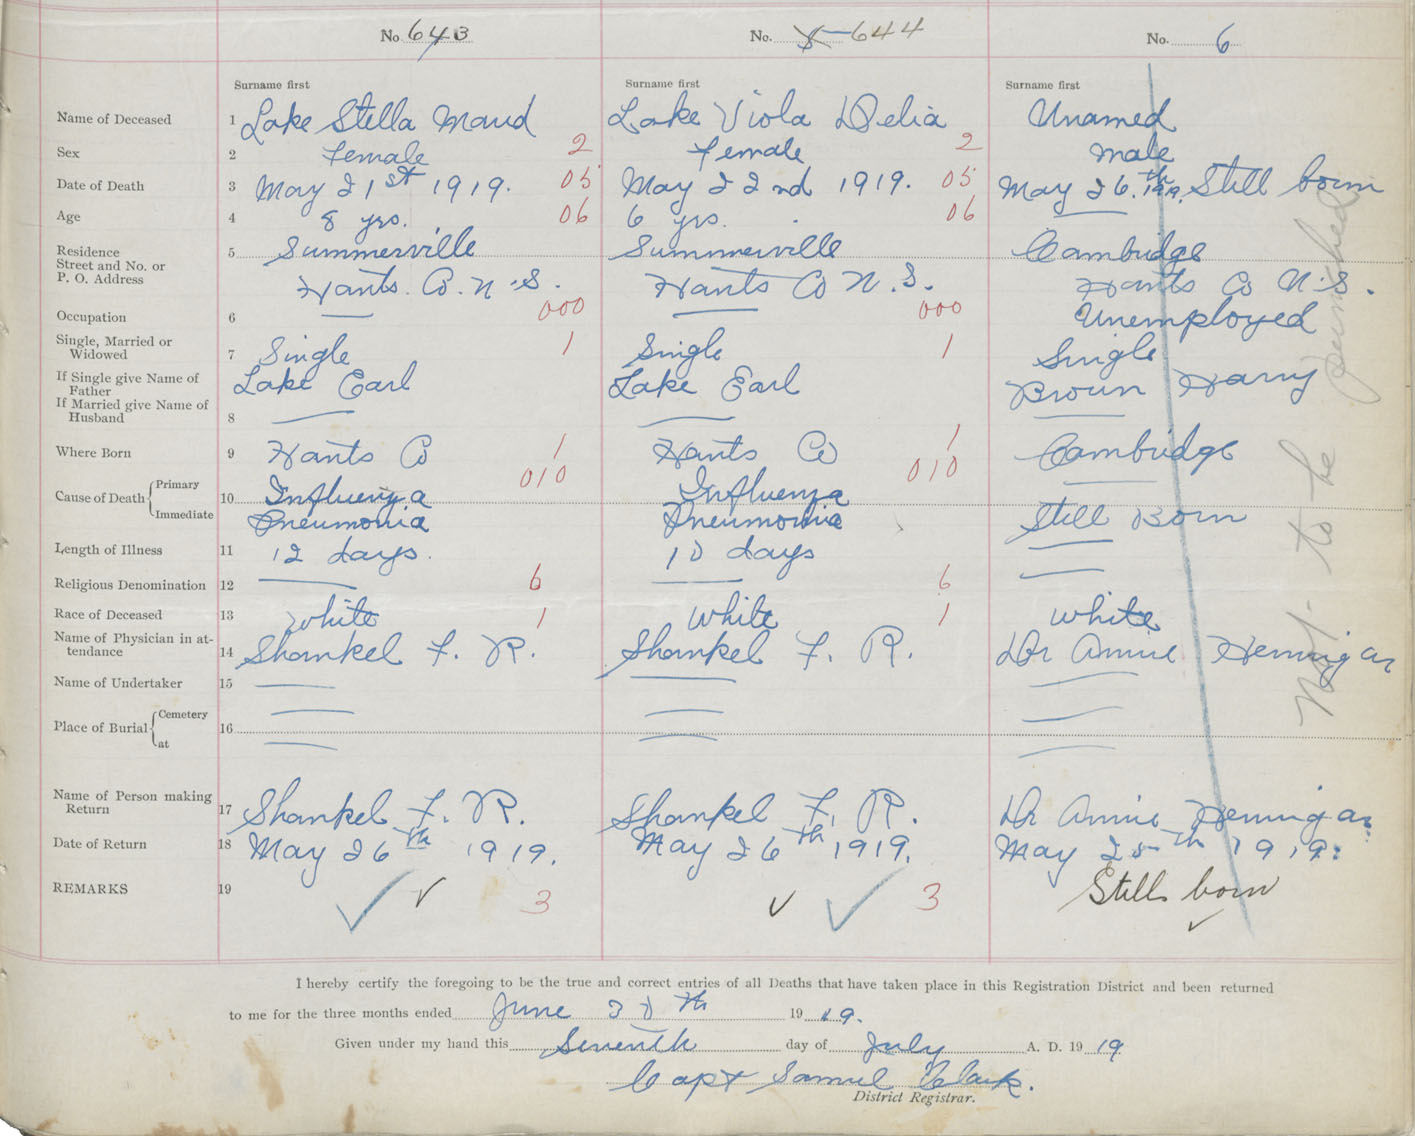 No. 643 No. 5 644 No. 6
Surname first Surname first Surname first
Name of Deceased 1 Lake Stella Maud Lake Viola Delia Unamed
Sex 2 Female 2 Female 2 male
Date of Death 3 May 21st 1919. 05 May 22nd 1919. 05 May 26.th 1919. Still born
Age 4 8 yrs. 06 6 yrs. 06
Residence 5 Summerville Summerville Cambridge
Street and No. or
P. O. Address Hants. Co. N.S. Hants Co N.S. Hants Co N.S.
Occupation 6 000 000 Unemployed
Single, Married or
Widowed 7 Single 1 Single 1 Single
If Single give Name of
Father Lake Earl Lake Earl Brown Harry
If Married give Name of
Husband 8
Where Born 9 Hants Co 1 Hants Co 1 Cambridge
010 010
Cause of Death Primary 10 Influenza Influenza
Immediate Pneumonia Pneumonia Still Born
Length of Illness 11 12 days. 10 days
Religious Denomination 12 6 6
Race of Deceased 13 White 1 White 1 White
Name of Physician in at-
tendance 14 Shankel F. R. Shankel F. R. Dr Annie Hennigar
Name of Undertaker 15
Place of Burial Cemetery 16
at
Name of Person making
Return 17 Shankel F. R. Shankel F. R. Dr Annie Hennigar
Date of Return 18 May 26th 1919. May 26th 1919. May 25th 1919.
REMARKS 19 3 3 Still born
Not to be punched
I hereby certify the foregoing to be the true and correct entries of all Deaths that have taken place in this Registration District and been returned
to me for the three months ended June 30th 1919.
Given under my hand this Seventh day of July A. D. 1919
Capt Samuel Clark.
District Registrar.